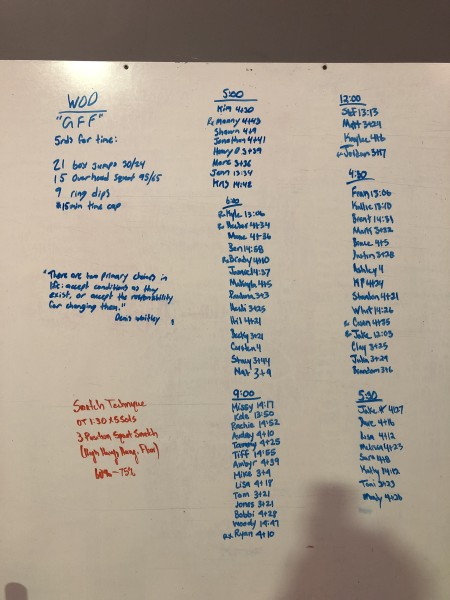 WOD
"GFF"
5rds for time:
21 box jumps 30/24
15 overhead squat 95/65
9 ring dips
*15min time cap
"There are two primary choices in
life: accept conditions as they
exist, or accept the responsibility
for changing them."
Denis Whitley
Snatch Technique
OT 1:30 x 5Sets
3 Position Squat Snatch
(High Hang, Hang, Floor)
60% - 75%
5:00
Kim 4+30
Rx Manny 4+43
Shawn 4+9
Jonathan 4+41
Henry P 3+39
Marc 3+36
Jenn 13:34
Kris 14:48
6:00
Rx Kyle 13:06
Rx Hector 4+34
4+36
Ben 14:58
Rx Brady 4+10
14:37
Makayla 4+5
3+3
3+25
4+21
Becky 3+21
Stacy 3+44
Nat 3+9
9:00
Missy 14:17
Kole 13:50
Rachie 14:52
Audrey 4+10
Tammy 4+25
Tiff 14:55
Ambyr 4+39
Mike 3+9
Lisa 4+18
Tom 3+21
Jones 3+21
Bobbi 4+28
Woody 14:47
Rx Ryan 4+10
12:00
Stef 13:13
Matt 3+29
Kaylee 4+6
Jordan 3+17
4:30
Fran 13:06
Kallie 13:40
Brent 14:31
Mark 3+32
4+5
Justin 3+28
Ashley 4
MP 4+24
4+21
14:26
4+35
Jake 12:03
Clay 3+25
Julia 3+29
Brandon 3+6
5:30
Jake H 4+27
Dave 4+16
Lisa 4+12
Melissa 4+23
Sara 4+8
Kelly 14:12
Toni 3+23
Mandy 4+26